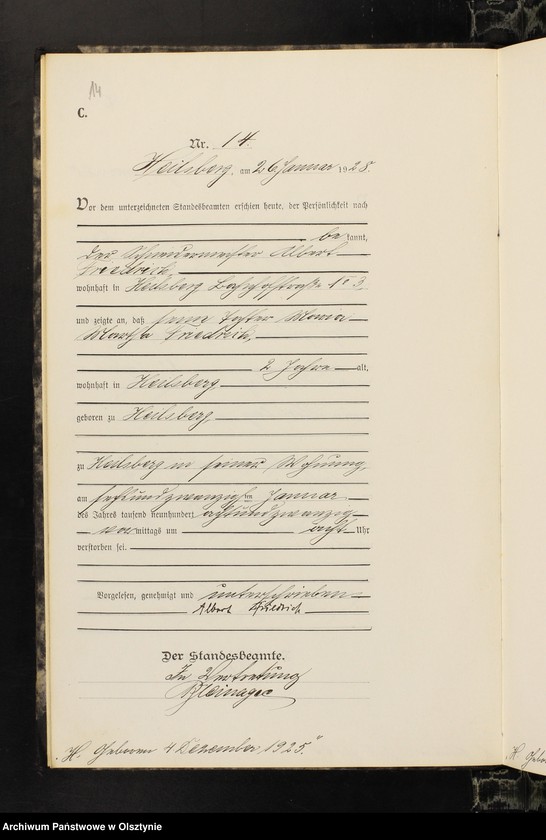 14
C.
Nr. 14.
Heilsberg, am 26 Januar 1928.
Vor dem unterzeichneten Standesbeamten erschien heute, der Persönlichkeit nach
be kannt,
der Schneidermeister Albert
Friedrich
wohnhaft in Heilsberg Bahnhofstraße
und zeigte an, daß seine Tochter Maria
Martha Friedrich,
2 Jahre alt,
wohnhaft in Heilsberg
geboren zu Heilsberg,
zu Heilsberg in seiner Wohnung,
am sechsundzwanzigsten Januar
des Jahres tausend neunhundert achtundzwanzig
vormittags um acht Uhr
verstorben sei.
Vorgelesen, genehmigt und unterschrieben
Albert Friedrich
Der Standesbeamte.
In Vertretung
"H. Geboren 4 Dezember 1925."
"H. Gebo
Archiwum Państwowe w Olsztynie